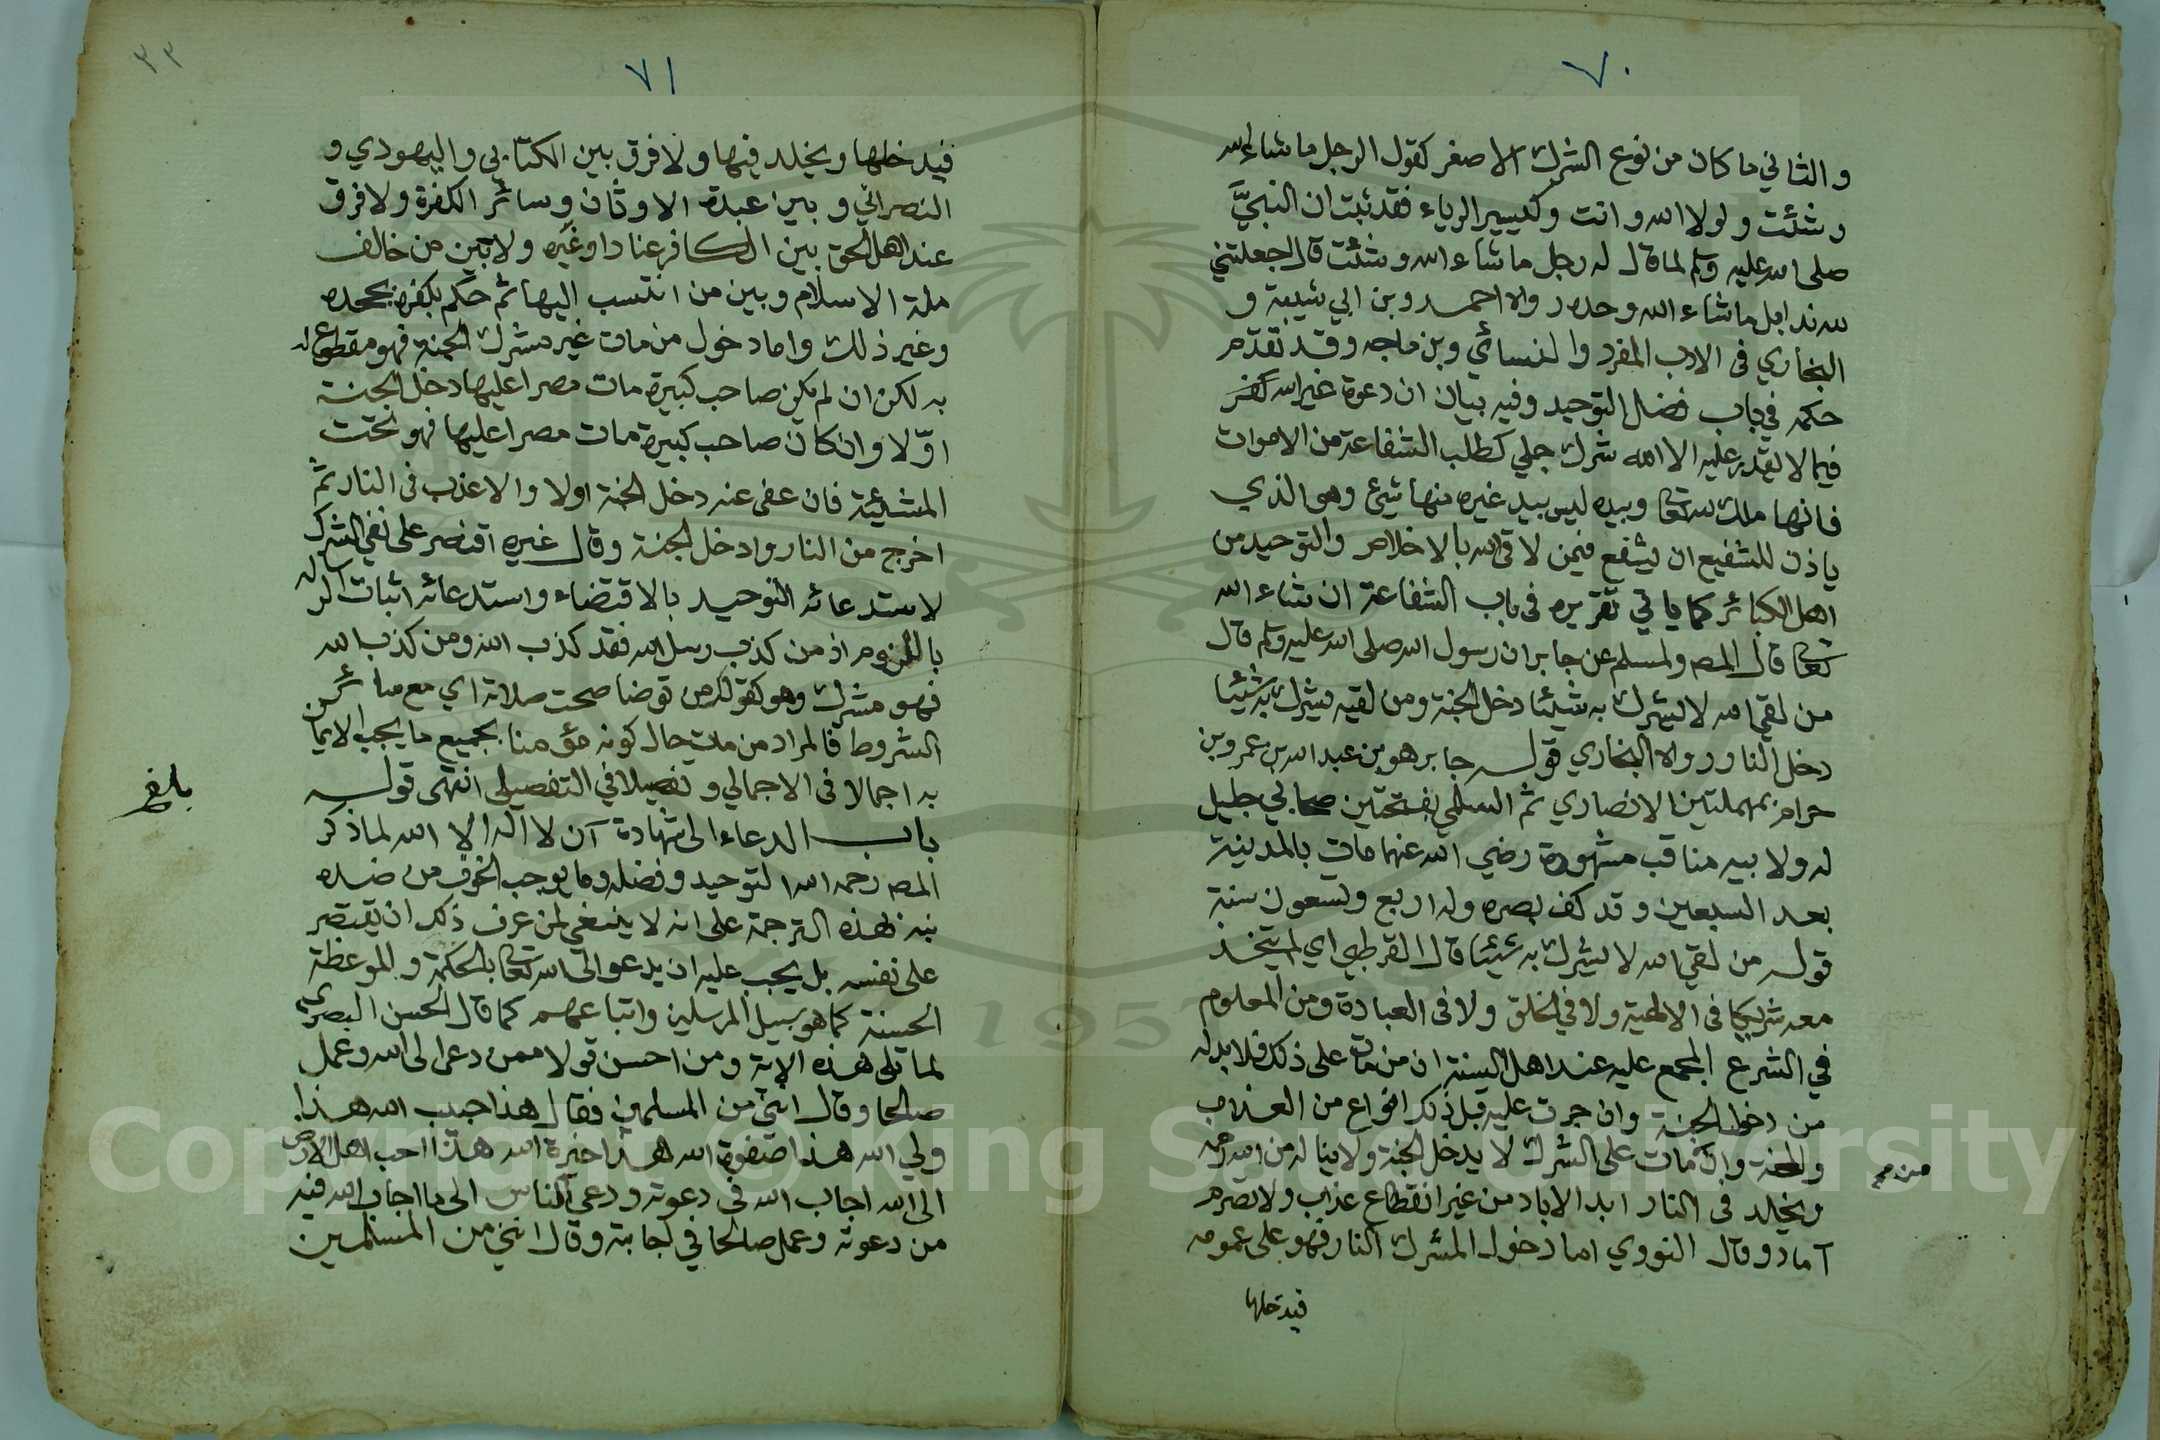 ٧٠
والثاني ما كان من نوع الشرك الاصغر كقول الرجل ما شاء الله
وشئت ولولا الله وانت وكيسير الرياء فقد ثبت ان النبيَّ
صلى الله عليه وسلم لما قال له رجل ما شاء الله وشئت قال اجعلتني
لله ندا بل ما شاء الله وحده رواه احمد وبن ابي شيبة و
البخاري في الادب المفرد والنسائي وبن ماجه وقد تقدم
حكمه في باب فضل التوحيد وفيه بيان ان دعوة غير الله كفر
فيما لا يقدر عليه الا الله شرك جلي كطلب الشفاعة من الاموات
فانها ملك لله تعا وبيده ليس بيد غيره منها شيئ وهو الذي
ياذن للشفيع ان يشفع فيمن لاقى الله بالاخلاص والتوحيد من
اهل الكبائر كما ياتي تقريره في باب الشفاعة ان شاء الله
تعا قال المصـ ولمسلم عن جابر ان رسول الله صلى الله عليه وسلم قال
من لقي الله لا يشرك به شيئا دخل الجنة ومن لقيه يشرك به شيئا
دخل النار ورواه البخاري قوله جابر هو بن عبد الله بن عمرو بن
حرام بمهملتين الانصاري ثم السلمي بفتحتين صحابي جليل
له ولابيه مناقب مشهورة رضي الله عنهما مات بالمدينة
بعد السبعين وقد كف بصره وله اربع وتسعون سنة
قوله من لقي الله لا يشرك به شيئا قال القرطبي اي لم يتخذ
معه شريكا في الالهية ولا في الخلق ولا في العبادة ومن المعلوم
في الشرع المجمع عليه عند اهل السنة ان من مات على ذلك فلا بد له
من دخول الجنة وان جرت عليه قبل ذلك انواع من العذاب
والمحنة وان مات على الشرك لا يدخل الجنة ولا يناله من الله رحمه
من صح
ويخلد في النار ابد الاباد من غير انقطاع عذاب ولا تصرم
آماد وقال النووي اما دخول المشرك النار فهو على عمومه
فيدخلها
٧١
٣٣
فيدخلها ويخلد فيها ولا فرق بين الكتابي واليهودي و
النصراني وبين عبدة الاوثان وسائر الكفرة ولا فرق
عند اهل الحق بين الكافر عنادا وغيره ولا بين من خالف
ملة الاسلام وبين من انتسب اليها ثم حكم بكفره بجحده
وغير ذلك واما دخول من مات غير مشرك الجنة فهو مقطوع له
به لكن ان لم يكن صاحب كبيرة مات مصرا عليها دخل الجنة
اوّلا وان كان صاحب كبيرة مات مصرا عليها فهو تحت
المشيئة فان عفى عنه دخل الجنة اولا والا عذب في النار ثم
اخرج من النار وادخل الجنة وقال غيره اقتصر على نفي الشرك
لاستدعائه التوحيد بالاقتضاء واستدعائه اثبات الرسالة
باللزوم اذ من كذب رسل الله فقد كذب الله ومن كذب الله
فهو مشرك وهو كقولك من توضا صحت صلاته اي مع سائر
الشروط فالمراد من مات حال كونه مؤمنا بجميع ما يجب الايمان
به اجمالا في الاجمالي وتفصيلا في التفصيلي انتهى قوله
بلغ
باب الدعاء الى شهادة آن لا اله الا الله لما ذكر
المصـ رحمه الله التوحيد وفضله وما يوجب الخوف من ضده
نبه بهذه الترجمة على انه لا ينبغي لمن عرف ذلك ان يقتصر
على نفسه بل يجب عليه ان يدعو الى الله تعا بالحكمة والموعظة
الحسنة كما هو سبيل المرسلين واتباعهم كما قال الحسن البصري
لما تلى هذه الاية ومن احسن قولا ممن دعى الى الله وعمل
صالحا وقال انني من المسلمين فقال هذا حبيب الله هذا
ولي الله هذا صفوة الله هذا خيرة الله هذا احب اهل الارض
الى الله اجاب الله في دعوته ودعى الناس الى ما اجاب الله فيه
من دعوته وعمل صالحا في اجابته وقال انني من المسلمين
1957
Copyright © King Saud University